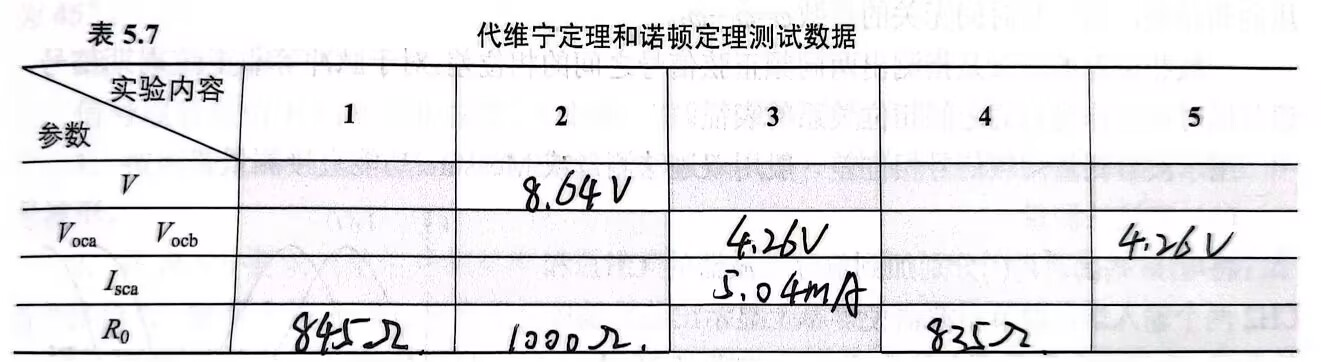 表 5.7 代维宁定理和诺顿定理测试数据
实验内容
参数 1 2 3 4 5
V 8.64V
Voca Vocb 4.26V 4.26V
Isca 5.04mA
R0 845Ω. 1000Ω. 835Ω.